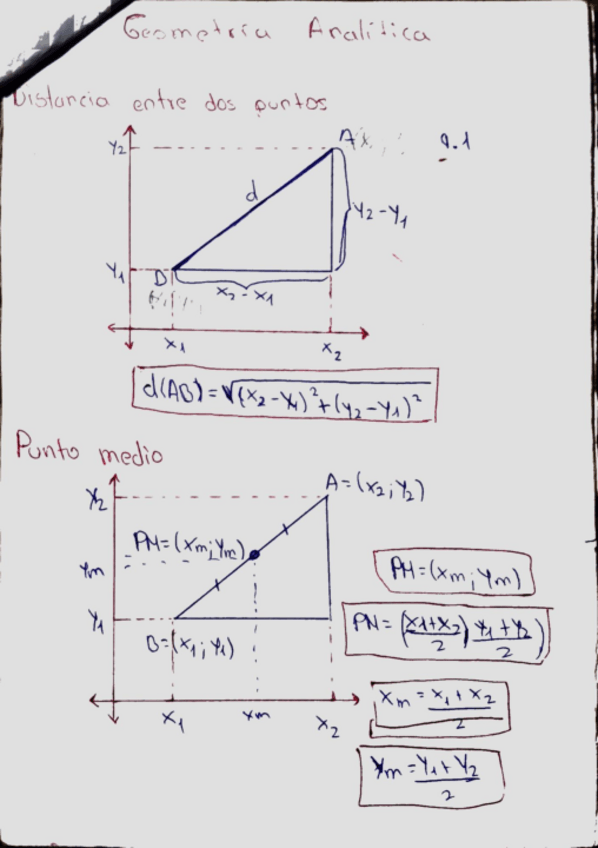 Geometría Analítica
Distancia entre dos puntos
Y2
A
9.1
d
Y2-Y1
Y1
B
X2-X1
X1
X2
d(AB)=√(X2-X1)²+(Y2-Y1)²
Punto medio
Y2
A=(X2;Y2)
PM=(Xm;Ym)
Ym
PM=(Xm;Ym)
Y1
PM=(X1+X2/2, Y1+Y2/2)
B=(X1;Y1)
Xm=X1+X2/2
X1
Xm
X2
Ym=Y1+Y2/2